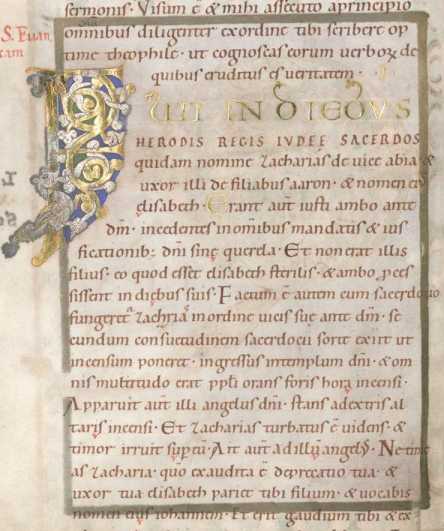 sermonis. Visum ē & mihi assecuto aprincipio
omnibus diligenter exordine tibi scribere op
time theophile. ut cognoscas eorum verborū de
quibus eruditus es veritatem.
S. Euan
cam
FUIT IN DIEBVS
HERODIS REGIS IVDEE SACERDOS
quidam nomine Zacharias de vice abia &
uxor illi de filiabus aaron. & nomen ei'
elisabeth. Erant aut̄ iusti ambo ante
dm̄. incedentes inomnibus mandatis & ius
ficationib; dn̄i sine querela. Et non erat illis
filius. eo quod esset elisabeth sterilis. & ambo p̄ces
sissent in diebus suis. Factum ē autem cum sacerdotio
fungeret̄ Zacharia in ordine vicis suę ante dm̄. se
cundum consuetudinem sacerdocii sorte exiit ut
incensum poneret. ingressus intemplum dn̄i. & om
nis multitudo erat ppl̄i orans foris hora incensi.
Apparuit aut̄ illi angelus dn̄i. stans adextris al
taris incensi. Et Zacharias turbatus ē videns. &
timor irruit sup eum. Ait aut̄ adillū angel's. Ne time
as Zacharia. quo exaudita ē deprecatio tua. &
uxor tua elisabeth pariet tibi filium. & vocabis
nomen eius iohannem. Et erit gaudium tibi & ex